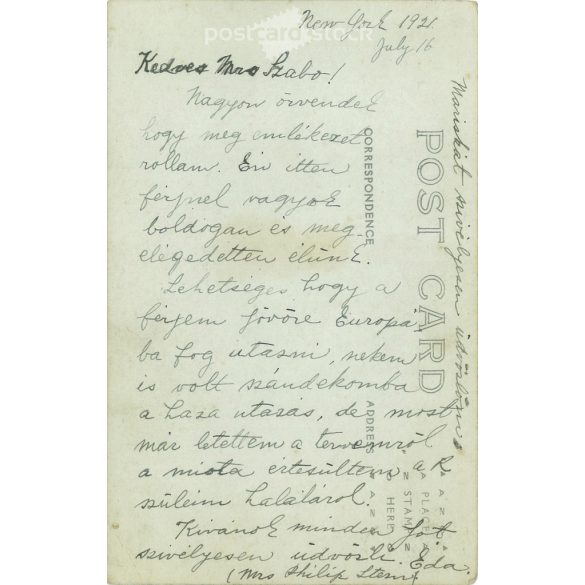 postcard stock
New York 1921.
July 16
Kedves Mrs Szabo!
Nagyon örvendek
hogy meg emlékezet
rollam. Én itten
férjnel vagyok
boldogan es meg-
elégedetten élünk.
Lehetséges hogy a
férjem jövöre Europá-
ba fog utazni, nekem
is volt szándekomba
a haza utazás, de most
már letettem a tervemröl
a miota értesültem a
szüleim haláláról.
Kivánok minden jót
szivélyesen üdvözli. Eda.
(Mrs Philip Stern)
Mariskát szivélyesen üdvözlöm
POST CARD
CORRESPONDENCE
ADDRESS
PLACE
STAMP
HERE